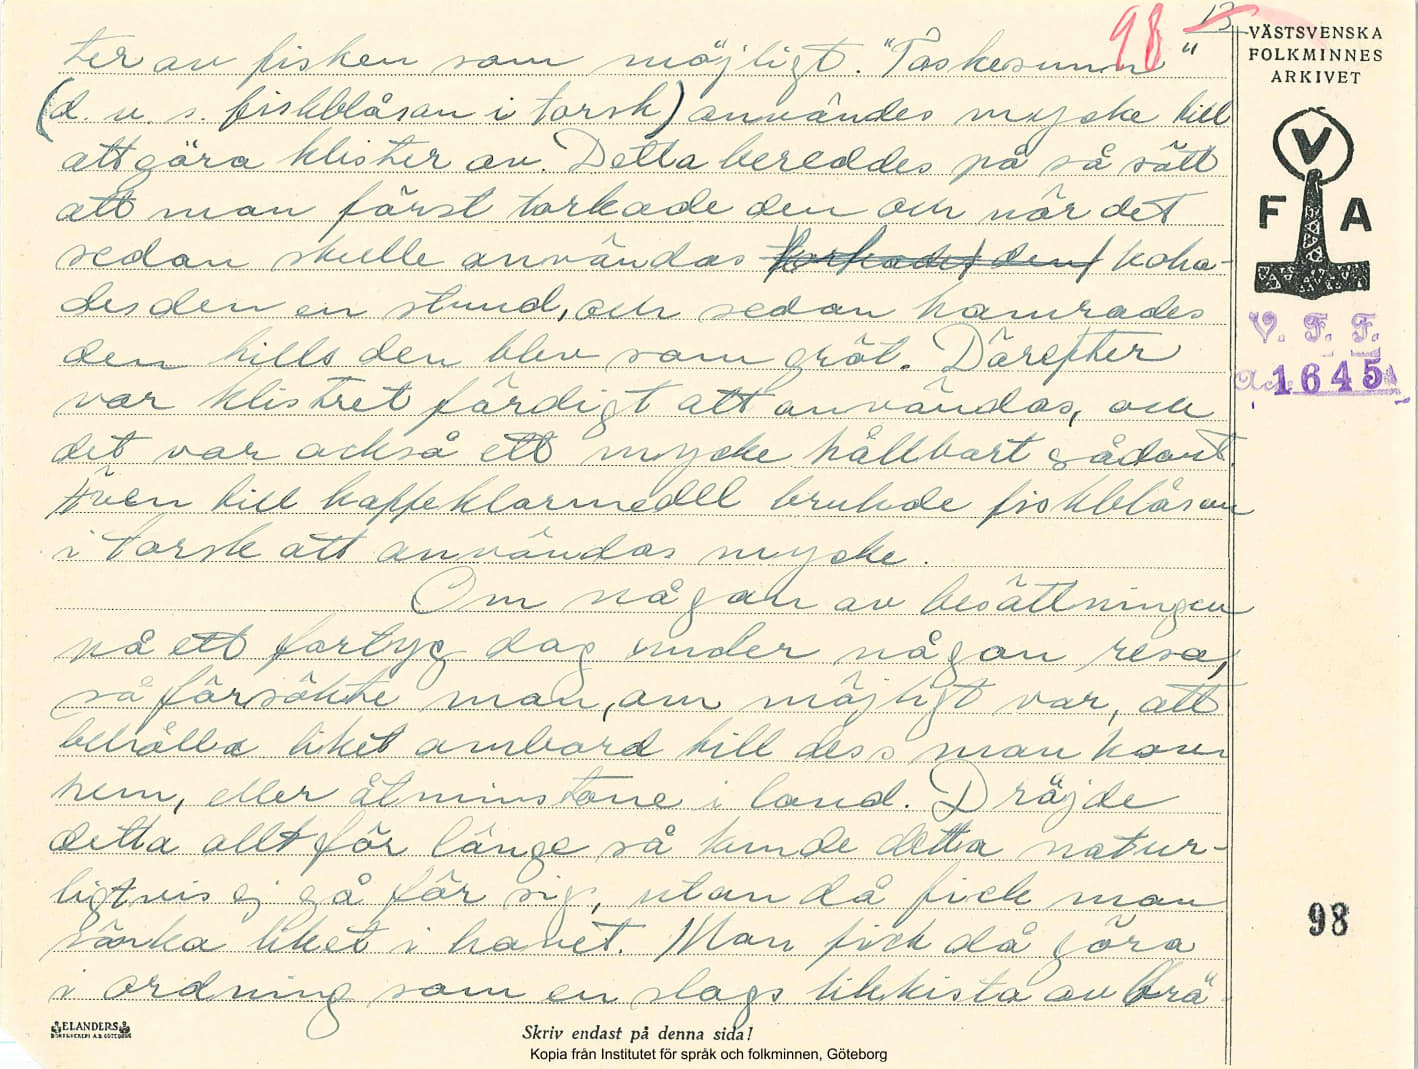 98 13
VÄSTSVENSKA
FOLKMINNES
ARKIVET
V
F A
V. F. F.
1645
ter av fisken som möjligt. "Tåskesunn"
(d. v. s. fiskblåsan i torsk) användes mycke till
att göra klister av. Detta bereddes på så sätt
att man först torkade den och när det
sedan skulle användas torkades den koka-
des den en stund, och sedan hamrades
den tills den blev som gröt. Därefter
var klistret färdigt att användas, och
det var också ett mycke hållbart sådant.
Även till kaffeklarmedel brukade fiskblåsan
i torsk att användas mycke.
Om någon av besättningen
på ett fartyg dog under någon resa,
så försökte man, om möjligt var, att
behålla liket ombord till dess man kom
hem, eller åtminstone i land. Dröjde
detta allt för länge så kunde detta natur-
ligtvis ej gå för sig, utan då fick man
sänka liket i havet. Man fick då göra
i ordning som en slags likkista av brä-
98
ELANDERS
BOKTRYCKERI A.B. GÖTEBORG
Skriv endast på denna sida!
Kopia från Institutet för språk och folkminnen, Göteborg